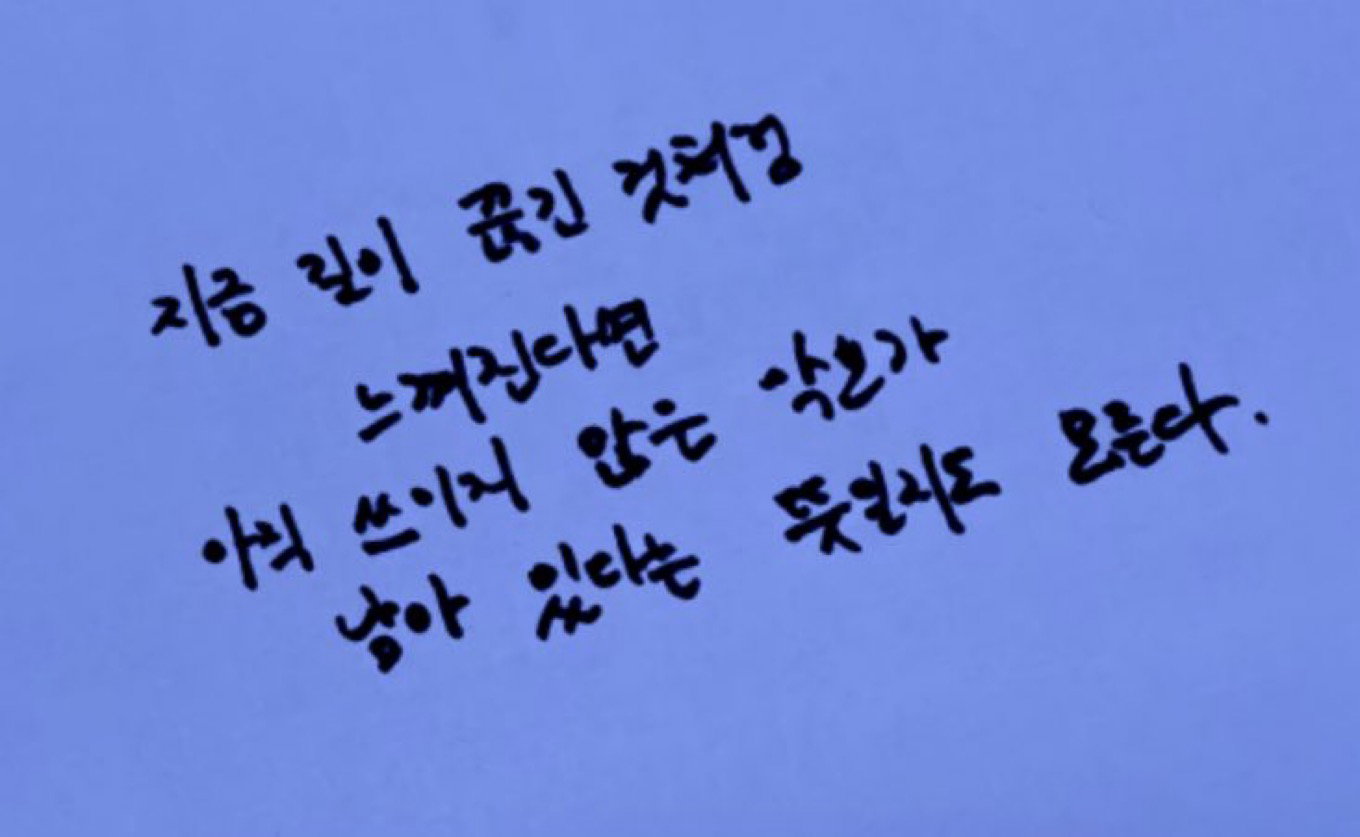 지금 길이 끊긴 것처럼
느껴진다면
아직 쓰이지 않은 악보가
남아 있다는 뜻일지도 모른다.